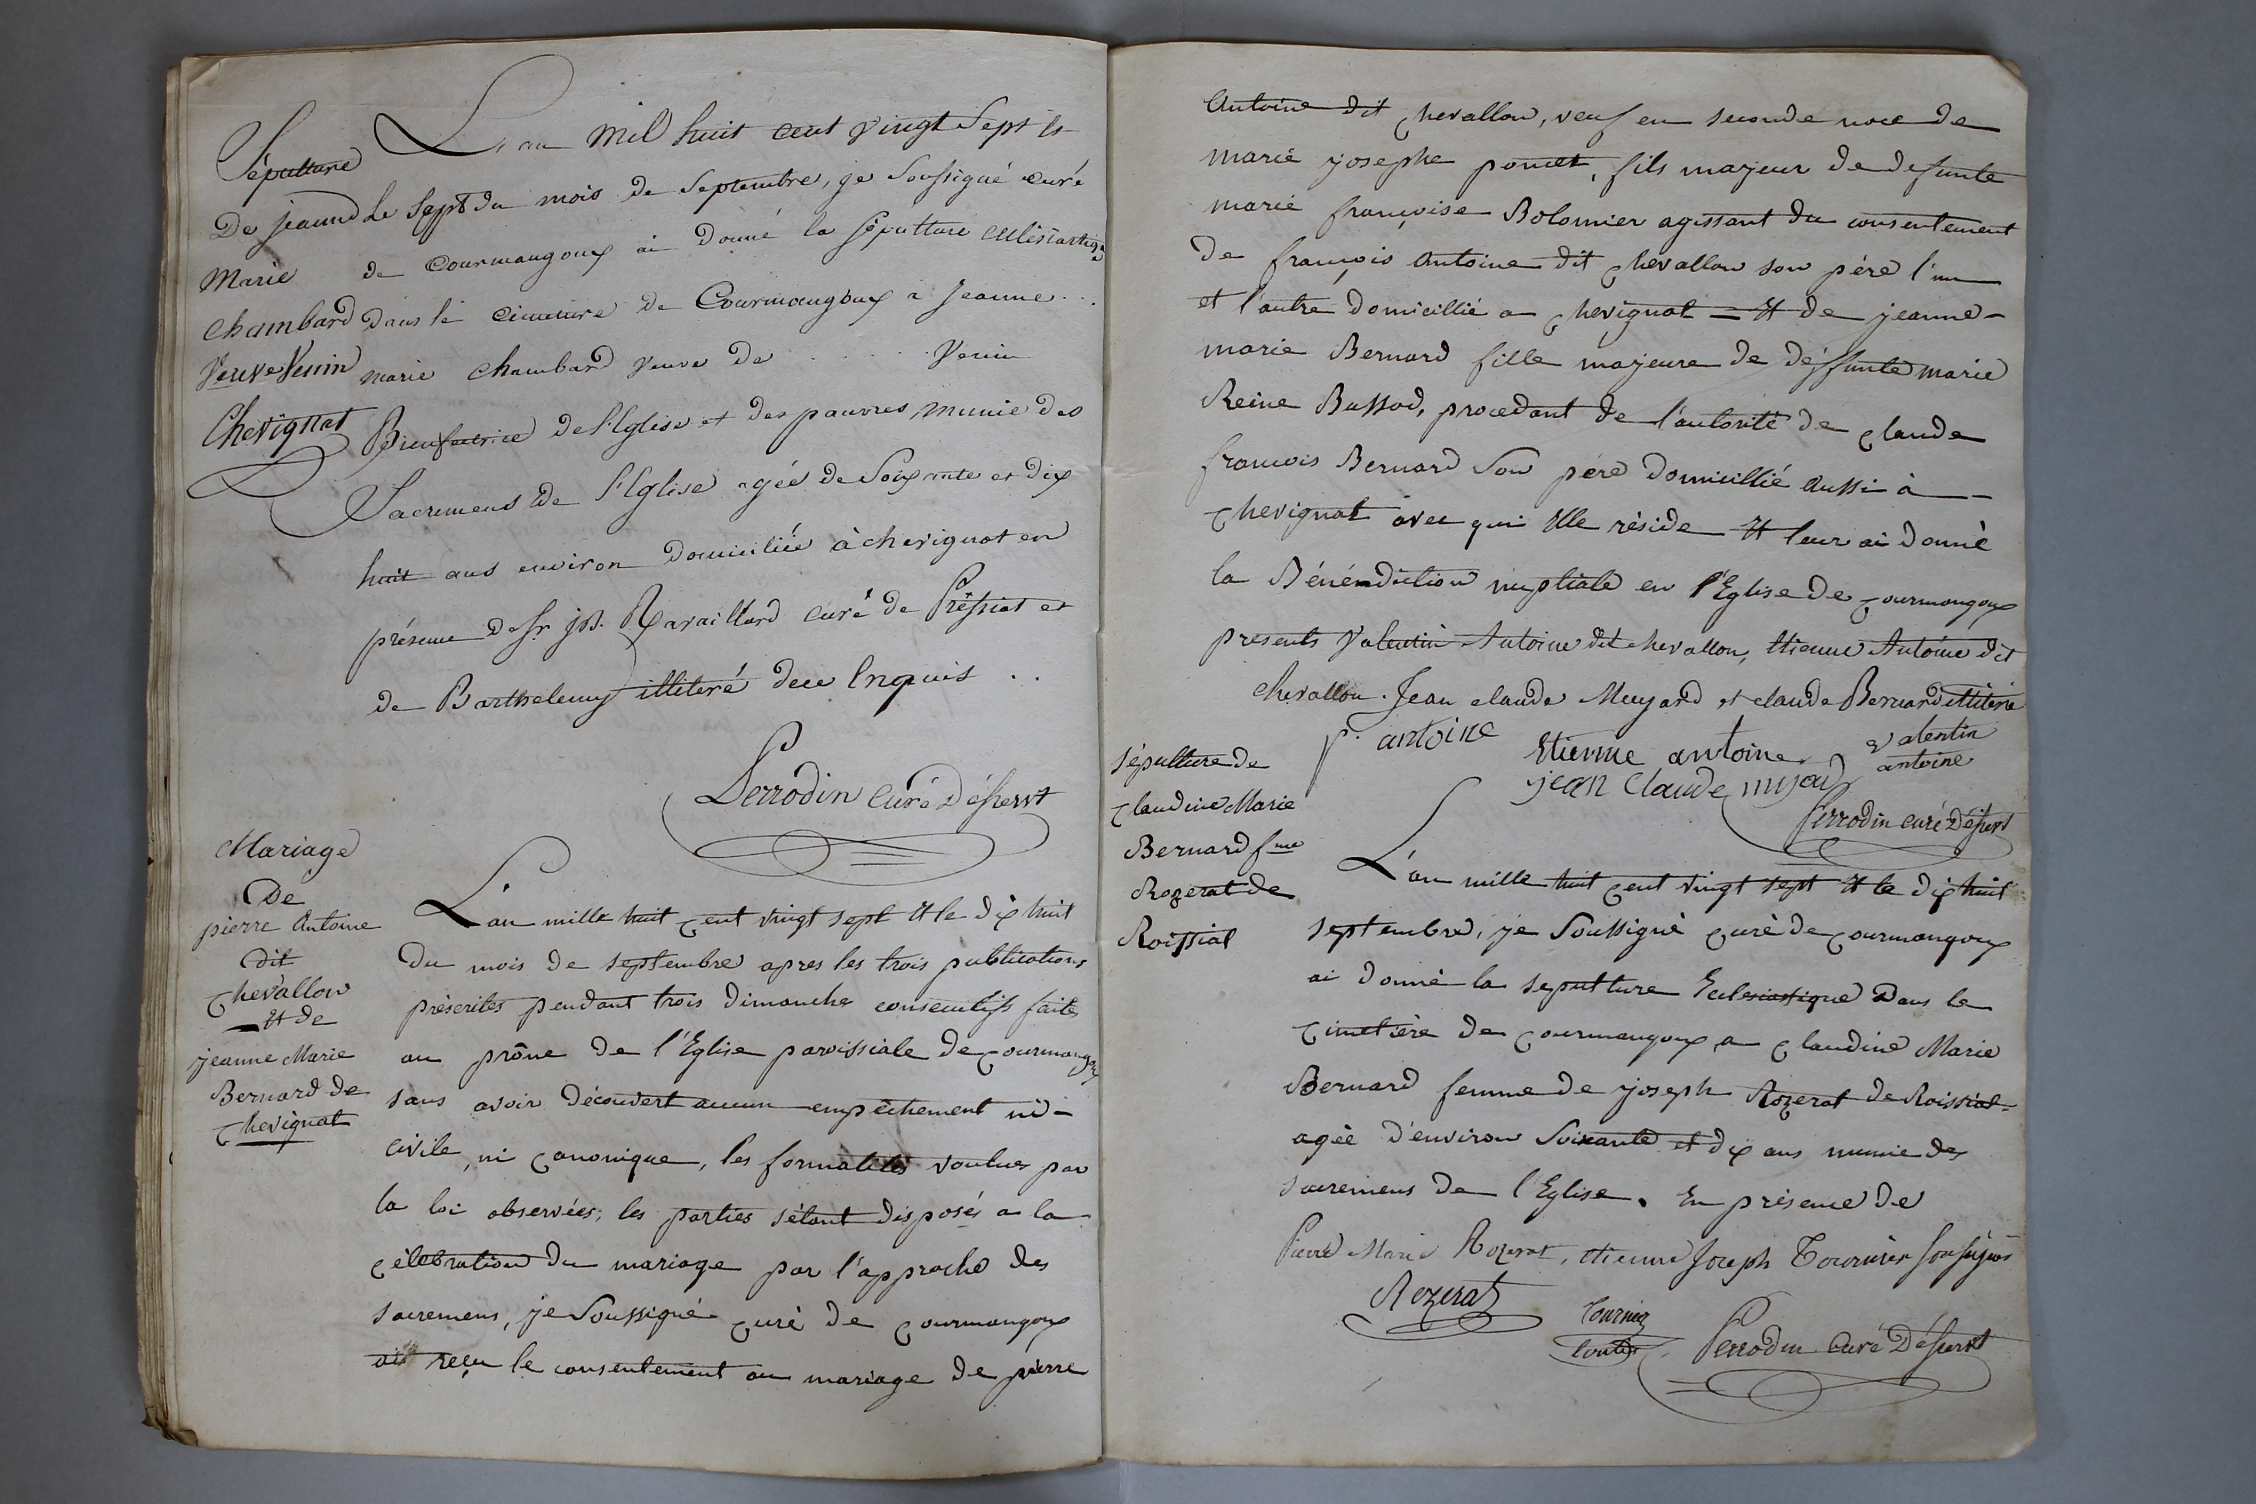 Sépulture
De jeanne
Marie
chambard
Veuve Venin
Chevignat
L'an mil huit cent vingt sept et
Le sept du mois de Septembre, je soussigné curé
de Courmangoux ai donné la sépulture eclésiastiq
dans le cimetiere de Courmangoux a Jeanne . . .
marie Chambard veuve de . . . . . . Venin
Bienfactrice de l'Eglise et des pauvres, munie des
Sacremens de l'Eglise agée de Soixante et dix
huit ans environ domiciliée à chevignat en
présence de Sr jB. Ravaillard curé de Préssiat et
de Barthelemy illiteré de ce Enquis . .
Perrodin curé Désservt
Mariage
De
pierre Antoine
dit
chevallon
et de
jeanne Marie
Bernard de
chevignat
L'an mille huit cent vingt sept et le dix huit
du mois de septembre apres les trois publications
préscrites pendant trois dimanche consecutifs faites
au prône de l'Eglise paroissiale de courmangoux
sans avoir découvert aucun empêchement ni -
civile, ni canonique, les formalités voulues par
la loi observées; les parties s'étant disposés a la
célébration du mariage par l'approche des
sacremens, je Soussigné curé de courmangoux
ai reçu le consentement au mariage de pierre
Antoine dit chevallon, veuf en seconde noce de
marie josephe poncet, fils majeur de defunte
marie françoise Bolomier agissant du consentement
de françois Antoine dit chevallon son père l'un
et l'autre domicillié a chevignat = et de jeanne -
marie Bernard fille majeure de déffunte marie
Reine Bussod, procedant de l'autorité de claude
francois Bernard Son père domicillié aussi à -
chevignat avec qui elle réside et leur ai donné
la Bénéndiction nuptiale en l'Eglise de courmangoux
presents Valentin Antoine dit chevallon, etienne Antoine dit
chevallon. Jean claude Muyard et claude Bernard illiteré
p. antoine
Etienne antoine
valentin
antoine
jean Claude muyard
Perrodin curé Déssert
sépulture de
claudine Marie
Bernard fme
Rozerat de
Roissiat
L'an mille huit cent vingt sept et le dix huit
septembre, je Soussigné curé de courmangoux
ai donné la sepulture Ecclesiastique Dans le
cimetière de courmangoux a claudine Marie
Bernard femme de joseph Rozerat de Roissiat -
agée d'environ Soixante et dix ans munie des
sacremens de l'Eglise. En présence de
Pierre Marie Rozerat, etienne Joseph Tournier soussignés
Rozerat
Tournier
Perrodin Curé Désservt